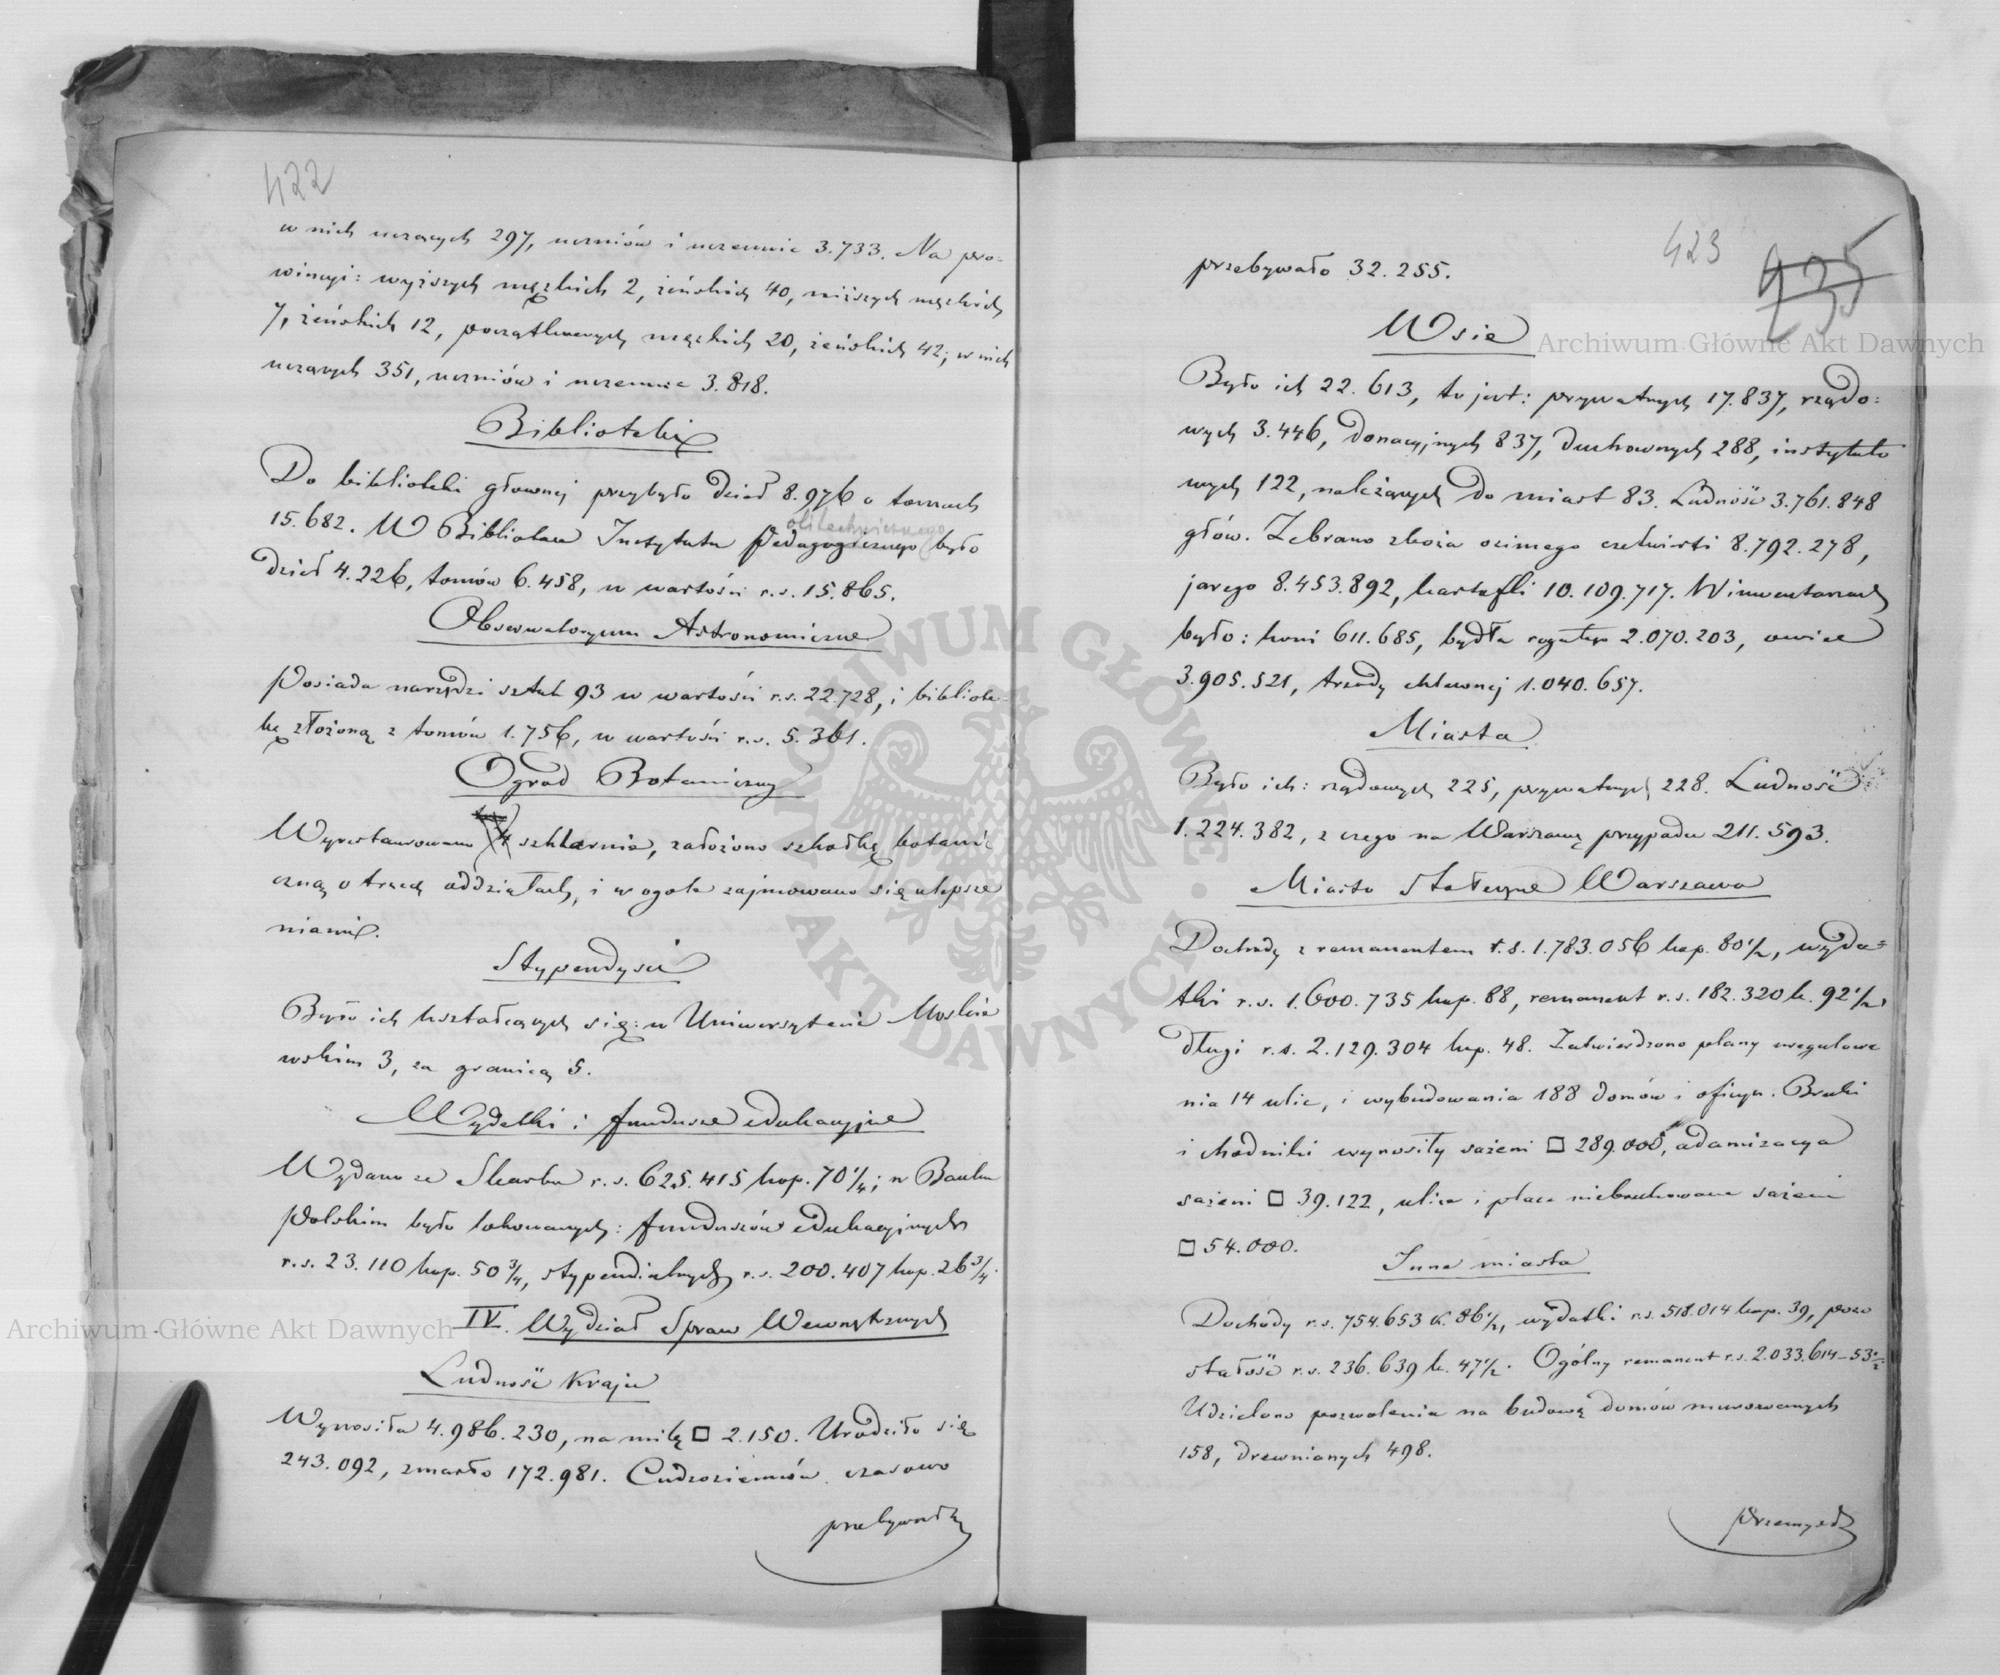 422
w nich uczących 297, uczniów i uczennic 3.733. Na pro=
wincyi: wyższych męzkich 2, żeńskich 40, niższych męzkich
7, żeńskich 12, początkowych męzkich 20, żeńskich 42; w nich
uczących 351, uczniów i uczennic 3.818.
Biblioteki
Do biblioteki głównej przybyło dzieł 8.976 o tomach
olitechnicznego
15.682. W Bibliotece Instytutu Pedagogicznego było
dzieł 4.226, tomów 6.458, w wartości r.s. 15.865.
Obserwatoryum Astronomiczne
Posiada narzędzi sztuk 93 w wartości r.s. 22.728, i bibliote-
kę złożoną z tomów 1.756, w wartości r.s. 5.361.
Ogród Botaniczny
Wyrestaurowano 4 szklarnie, założono szkołkę botani
czną o trzech oddziałach, i w ogole zajmowano się ulepsze
niami.
Stypendyści
Było ich kształcących się: w Uniwersytecie Moskie
wskim 3, za granicą 5.
Wydatki i fundusze edukacyjne
Wydano ze Skarbu r.s. 625.415 kop. 70 1/4; w Banku
Polskim było lokowanych: funduszów edukacyjnych
r.s. 23.110 kop. 50 3/4, stypendialnych r.s. 200.407 kop. 26 3/4.
IV. Wydział Spraw Wewnętrznych
Ludność Kraju
Wynosiła 4.986.230, na milę □ 2.150. Urodziło się
243.092, zmarło 172.981. Cudzoziemców czasowo
przebywało
423
235
przebywało 32.255.
Wsie
Było ich 22.613, to jest: prywatnych 17.837, rządo=
wych 3.446, donacyjnych 837, duchownych 288, instytuto
wych 122, należących do miast 83. Ludność 3.761.848
głów. Zebrano zboża ozimego czetwierti 8.792.278,
jarego 8.453.892, kartofli 10.109.717. W inwentarzach
było: koni 611.685, bydła rogatego 2.070.203, owiec
3.905.521, trzody chlewnej 1.040.657.
Miasta
Było ich: rządowych 225, prywatnych 228. Ludność
1.224.382, z czego na Warszawę przypada 211.593.
Miasto Stołeczne Warszawa
Dochody z remanentem r.s. 1.783.056 kop. 80 1/2, wyda=
tki r.s. 1.600.735 kop. 88, remanent r.s. 182.320 k. 92 1/2,
długi r.s. 2.129.304 kop. 48. Zatwierdzono plany uregulowa
nia 14 ulic, i wybudowania 188 domów i oficyn. Bruki
i chodniki wynosiły sażeni □ 289.000, adamizacya
sażeni □ 39.122, ulice i place niebrukowane sażeni
□ 54.000.
Inne miasta
Dochody r.s. 754.653 k. 86 1/2, wydatki r.s. 518.014 kop. 39, pozo
stałość r.s. 236.639 k. 47 1/2. Ogólny remanent r.s. 2.033.614–53 1/2
Udzielono pozwolenia na budowę domów murowanych
158, drewnianych 498.
Przemysł
Archiwum Główne Akt Dawnych
Archiwum Główne Akt Dawnych
ARCHIWUM GŁÓWNE AKT DAWNYCH